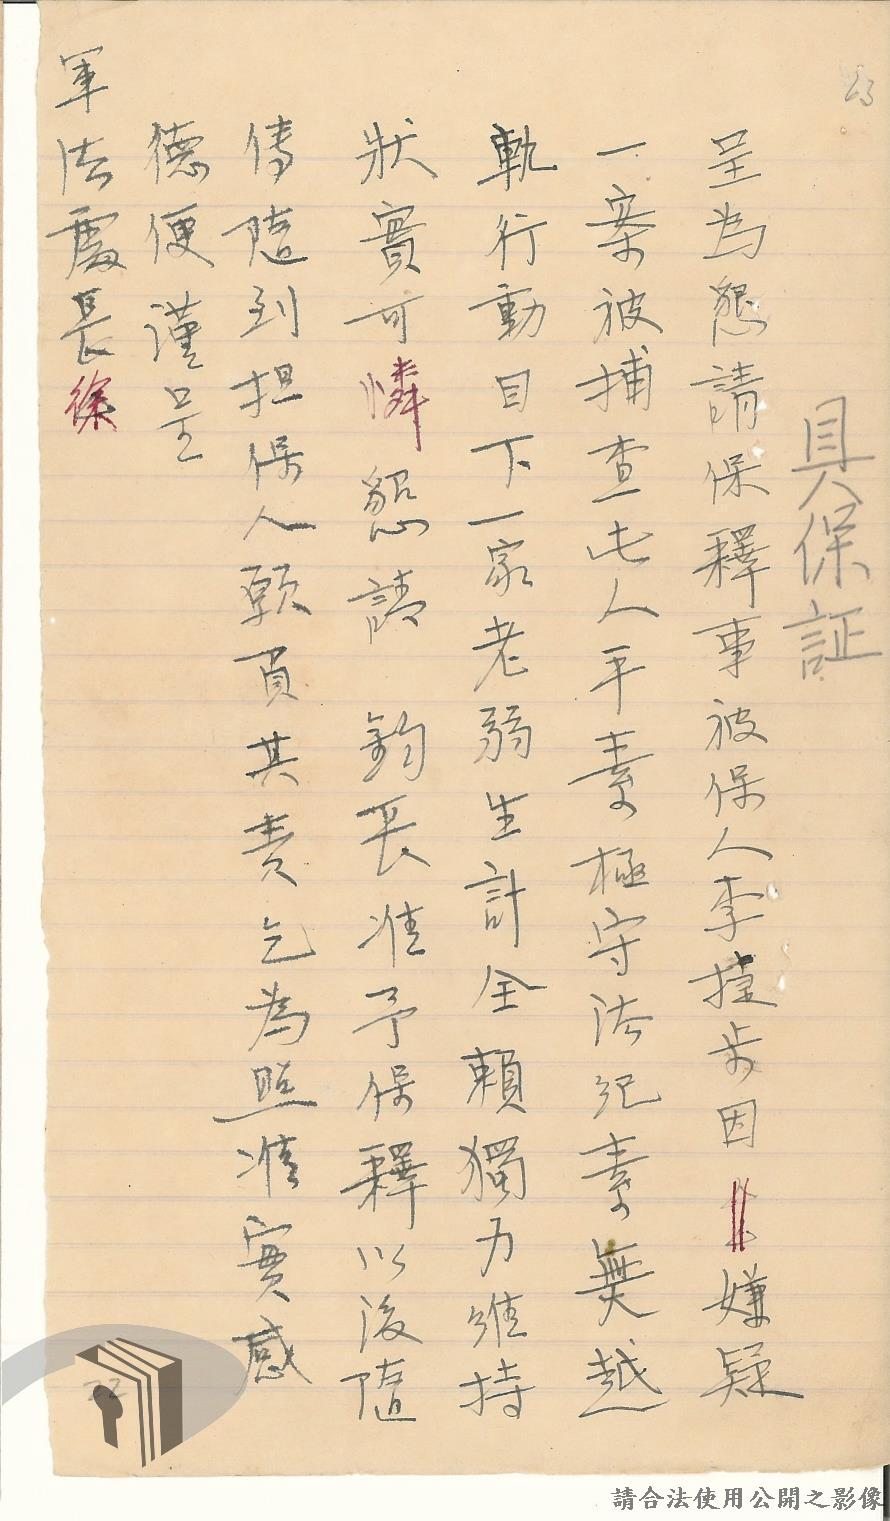 具保証
呈為懇請保釋事被保人李捷步因嫌疑
一案被捕查此人平素極守法紀素無越
軌行動目下一家老弱生計全賴獨力維持
狀實可憐懇請 鈞長准予保釋以後隨
傳隨到担保人願負其責乞為照准實感
德便謹呈
軍法處長徐
23
22
請合法使用公開之影像